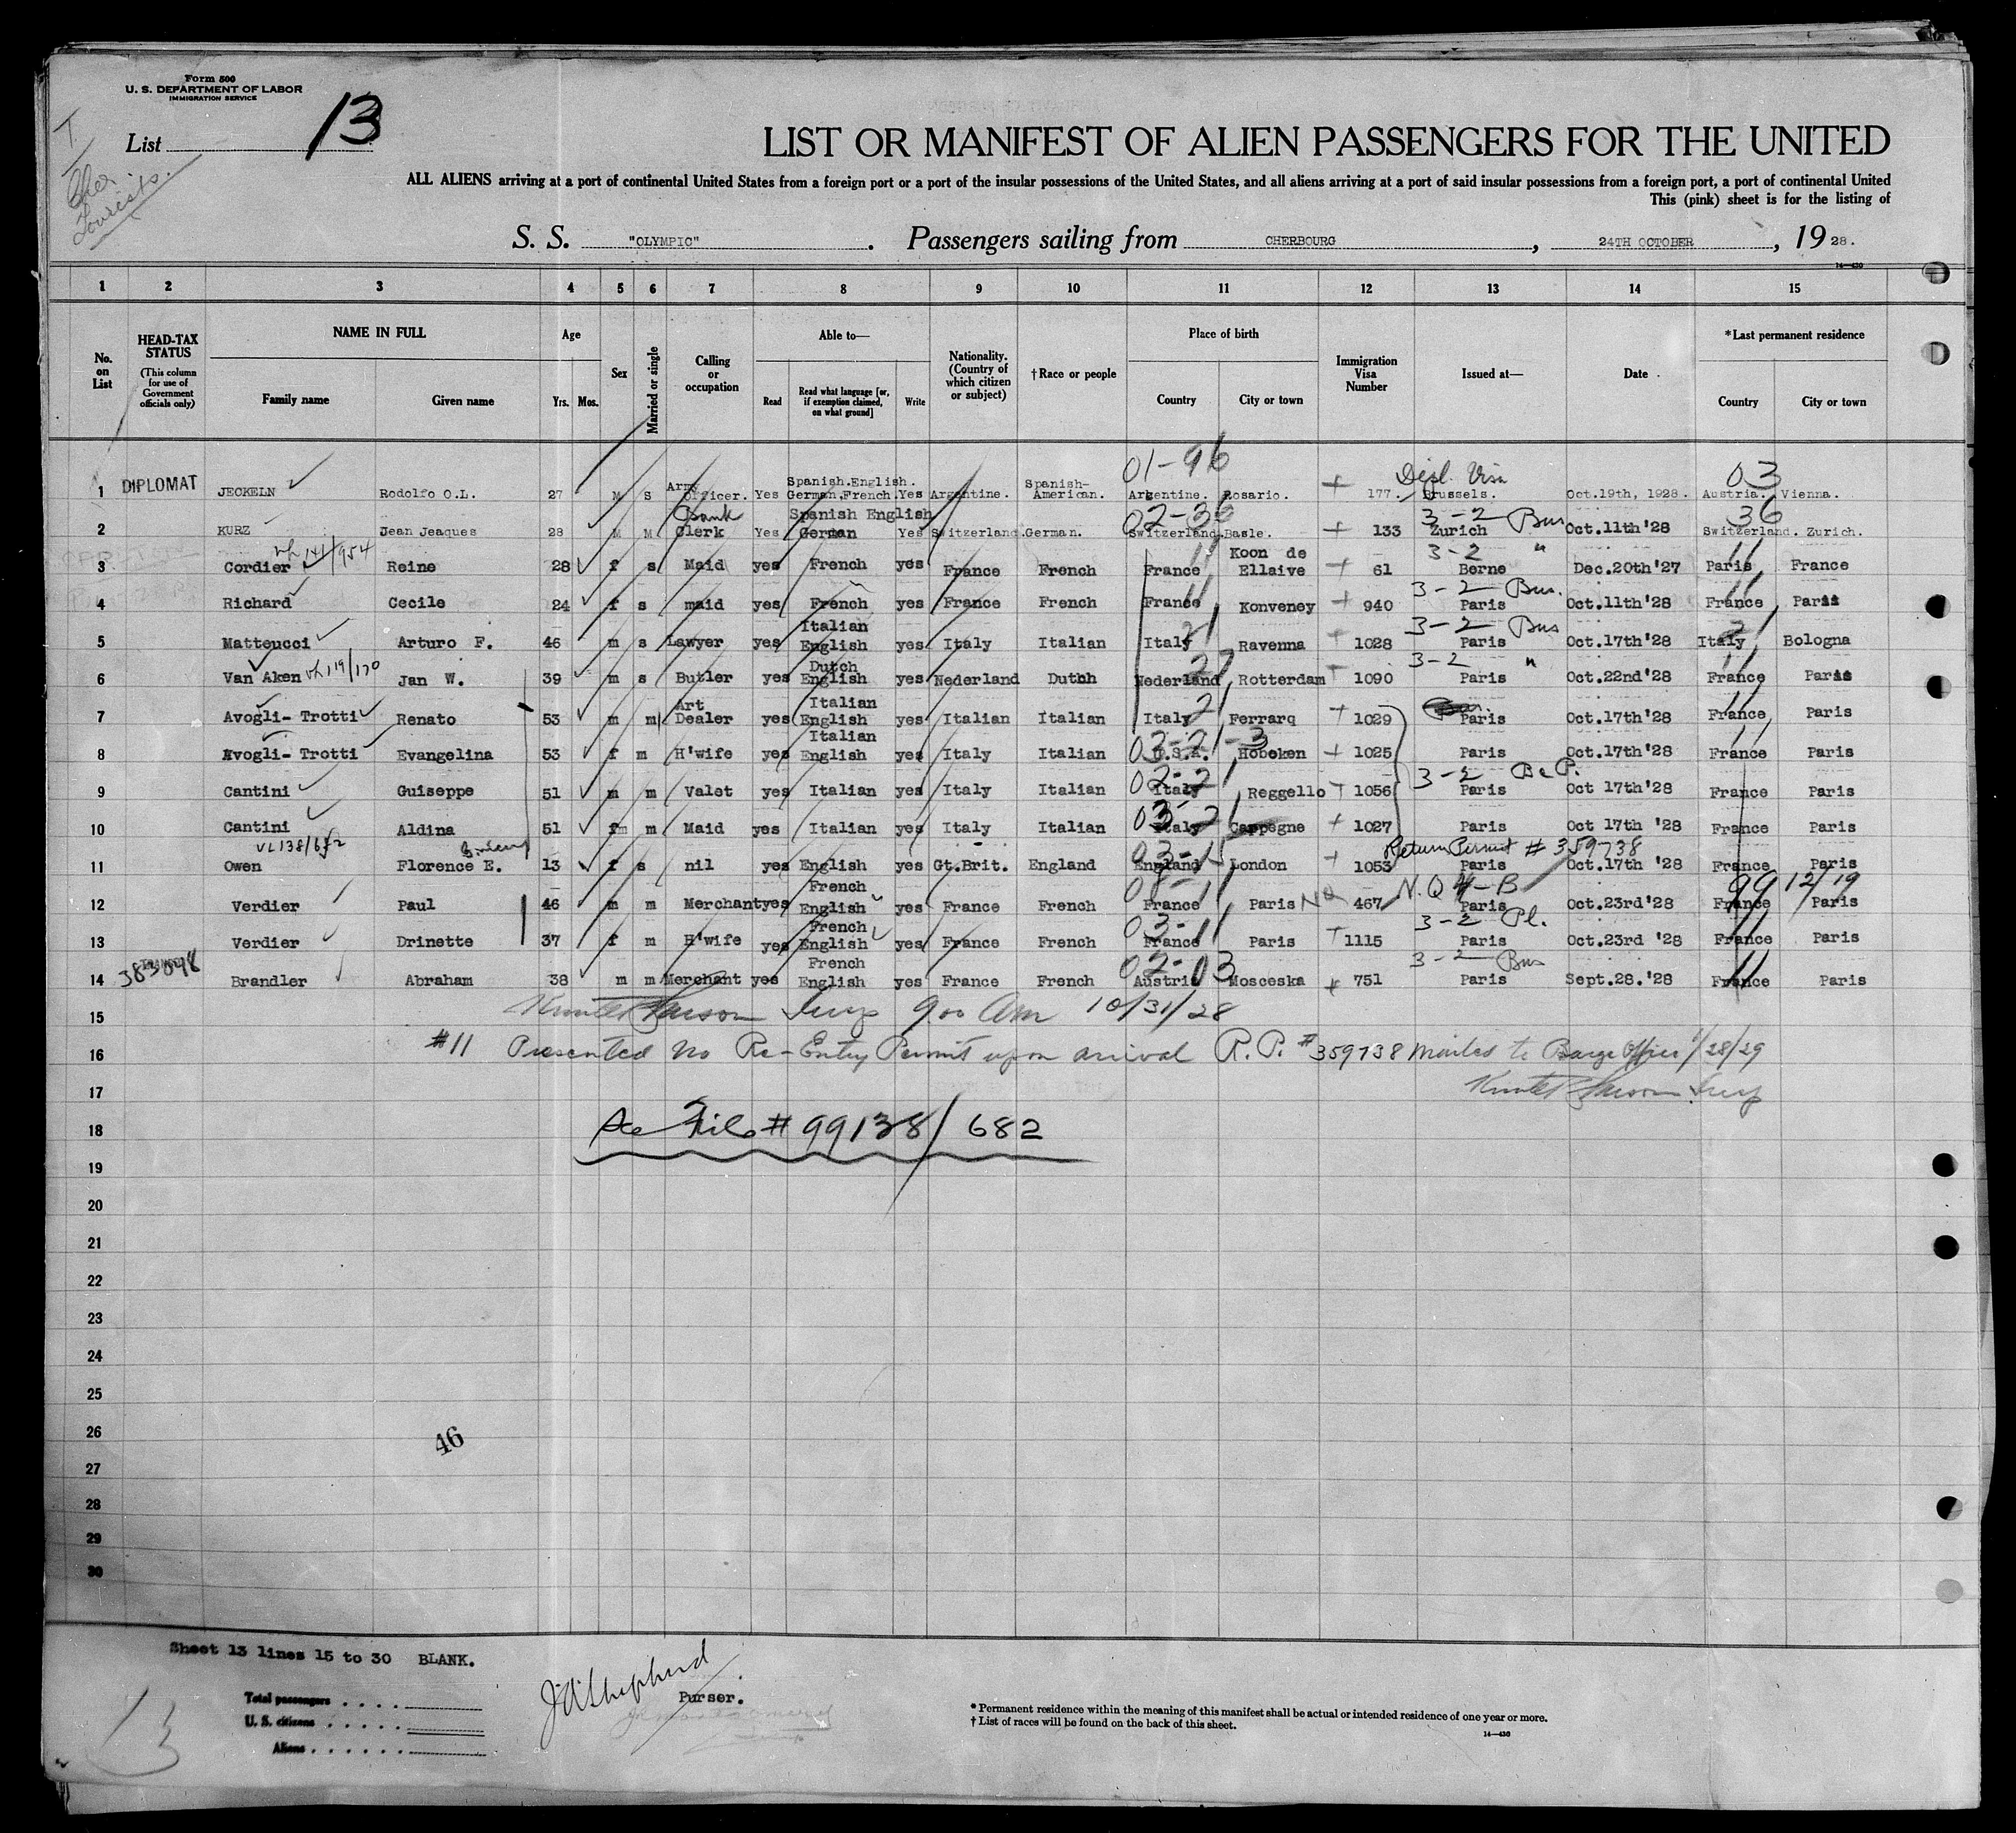 Form 500
U. S. DEPARTMENT OF LABOR
IMMIGRATION SERVICE
List 13
LIST OR MANIFEST OF ALIEN PASSENGERS FOR THE UNITED
ALL ALIENS arriving at a port of continental United States from a foreign port or a port of the insular possessions of the United States, and all aliens arriving at a port of said insular possessions from a foreign port, a port of continental United
This (pink) sheet is for the listing of
S. S. "OLYMPIC". Passengers sailing from CHERBOURG, 24TH OCTOBER, 1928.
14—430
1 2 3 4 5 6 7 8 9 10 11 12 13 14 15
No. on List
HEAD-TAX STATUS (This column for use of Government officials only)
NAME IN FULL
Family name Given name
Age
Yrs. Mos.
Sex
Married or single
Calling or occupation
Able to—
Read Read what language [or, if exemption claimed, on what ground] Write
Nationality. (Country of which citizen or subject)
†Race or people
Place of birth
Country City or town
Immigration Visa Number
Issued at—
Date
*Last permanent residence
Country City or town
01-96 Dipl. Visa 03
1 DIPLOMAT JECKELN Rodolfo O.L. 27 M S Army Officer. Yes Spanish.English. German,French. Yes Argentine. Spanish-American. Argentine. Rosario. 177. Brussels. Oct.19th, 1928. Austria. Vienna.
02-36 3-2 Bus 36
2 KURZ Jean Jeaques 28 M M Bank Clerk Yes Spanish English German Yes Switzerland. German. Switzerland. Basle. 133 Zurich Oct.11th'28 Switzerland. Zurich.
141/954 11 3-2 " 11
3 Cordier Reine 28 f s Maid yes French yes France French France Koon de Ellaive 61 Berne Dec.20th'27 Paris France
11 3-2 Bus. 11
4 Richard Cecile 24 f s maid yes French yes France French France Konveney 940 Paris Oct.11th'28 France Paris
21 3-2 Bus 21
5 Matteucci Arturo F. 46 m s Lawyer yes Italian English yes Italy Italian Italy Ravenna 1028 Paris Oct.17th'28 Italy Bologna
119/170 27 3-2 " 11
6 Van Aken Jan W. 39 m s Butler yes Dutch English yes Nederland Dutch Nederland Rotterdam 1090 Paris Oct.22nd'28 France Paris
21 11
7 Avogli- Trotti Renato 53 m m Art Dealer yes Italian English yes Italian Italian Italy Ferrarq 1029 Paris Oct.17th'28 France Paris
03-21-3 11
8 Avogli- Trotti Evangelina 53 f m H'wife yes Italian English yes Italy Italian U.S.A. Hoboken 1025 Paris Oct.17th'28 France Paris
02-21 3-2
9 Cantini Guiseppe 51 m m Valet yes Italian yes Italy Italian Italy Reggello 1056 Paris Oct 17th'28 France Paris
03-21
10 Cantini Aldina 51 f m Maid yes Italian yes Italy Italian Italy Cappegne 1027 Paris Oct 17th '28 France Paris
03-15 Return Permit # 359738
11 Owen Florence E. 13 f s nil yes English yes Gt.Brit. England England London 1053 Paris Oct.17th '28 France Paris
11 N.Q 4-B 99 12/19
12 Verdier Paul 46 m m Merchant yes French English yes France French France Paris 467 Paris Oct.23rd'28 France Paris
03-11 3-2 Pl. 11
13 Verdier Drinette 37 f m H'wife yes French English yes France French France Paris 1115 Paris Oct.23rd '28 France Paris
383098 02-03 3-2 Bus 11
14 Brandler Abraham 38 m m Merchant yes French English yes France French Austria Mosceska 751 Paris Sept.28.'28 France Paris
15 Insp 9.00 Am 10/31/28
16 #11 Presented no Re-Entry Permit upon arrival R.P. # 359738 mailed to Barge Office 1/28/29
17 Insp
18 See File # 99138/682
19
20
21
22
23
24
25
26
46
27
28
29
30
Sheet 13 lines 15 to 30 BLANK.
Total passengers
U. S. citizens
Aliens
13
Shepherd
Purser.
* Permanent residence within the meaning of this manifest shall be actual or intended residence of one year or more.
† List of races will be found on the back of this sheet.
14—430